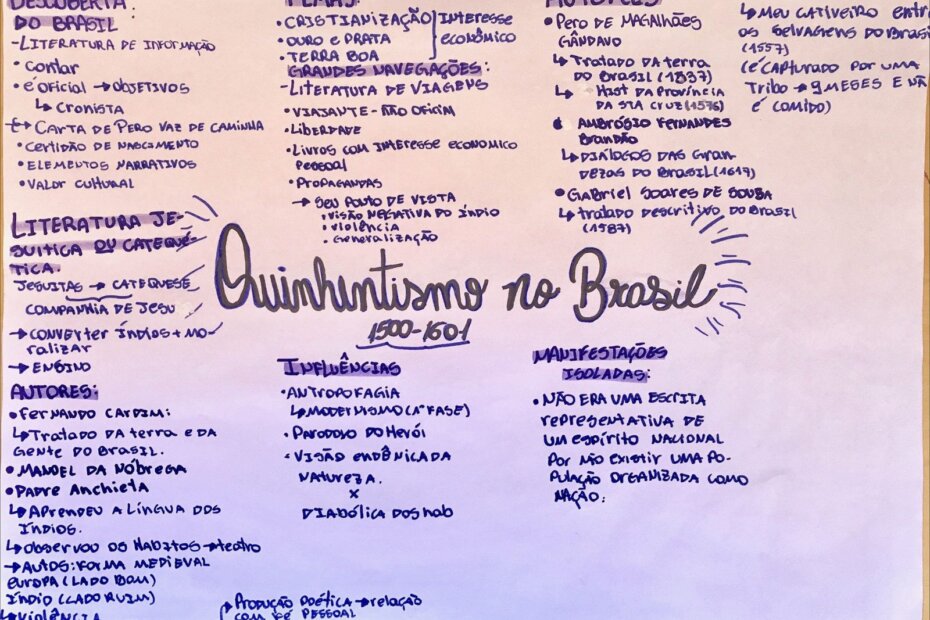 DESCOBERTA
DO BRASIL
-LITERATURA DE INFORMAÇÃO
• CONTAR
• É OFICIAL → OBJETIVOS
↳ CRONISTA
CARTA DE PERO VAZ DE CAMINHA
• CERTIDÃO DE NASCIMENTO
• ELEMENTOS NARRATIVOS
• VALOR CULTURAL
LITERATURA JE-
SUÍTICA OU CATEQUÉ-
TICA.
JESUÍTAS → CATEQUESE
COMPANHIA DE JESU
→ CONVERTER ÍNDIOS + MO-
RALIZAR
→ ENSINO
AUTORES:
• FERNANDO CARDIM:
↳ TRATADO DA TERRA E DA
GENTE DO BRASIL.
• MANOEL DA NÓBREGA
• PADRE ANCHIETA
↳ APRENDEU A LÍNGUA DOS
ÍNDIOS.
↳ OBSERVOU OS HABITOS → TEATRO
→ AUTOS: FORMA MEDIEVAL
EUROPA (LADO BOM)
ÍNDIO (LADO RUIM)
↳ VIOLÊNCIA
• CRISTIANIZAÇÃO
• OURO E PRATA
• TERRA BOA
INTERESSE
ECONÔMICO
GRANDES NAVEGAÇÕES:
-LITERATURA DE VIAGENS
• VIAJANTE - NÃO OFICIAL
• LIBERDADE
• LIVROS COM INTERESSE ECONOMICO
PESSOAL
• PROPAGANDAS
→ SEU PONTO DE VISTA
• VISÃO NEGATIVA DO ÍNDIO
• VIOLÊNCIA
• GENERALIZAÇÃO
AUTORES
• PERO DE MAGALHÃES
GÂNDAVO
↳ TRATADO DA TERRA
DO BRASIL (1837)
↳ HIST DA PROVÍNCIA
DA STA CRUZ (1576)
• AMBRÓSIO FERNANDES
BRANDÃO
↳ DIÁLOGOS DAS GRAN-
DEZAS DO BRASIL (1617)
• GABRIEL SOARES DE SOUSA
↳ TRATADO DESCRITIVO DO BRASIL
(1587)
↳ MEU CATIVEIRO ENTR
OS SELVAGENS DO BRASI
(1557)
(É CAPTURADO POR UMA
TRIBO → 9 MESES E NÃ
É COMIDO)
Quinhentismo no Brasil
1500-1601
INFLUÊNCIAS
• ANTROPOFAGIA
↳ MODERNISMO (1ª FASE)
• PARODOXO DO HERÓI
• VISÃO ENDÊNICA DA
NATUREZA.
X
DIABÓLICA DOS HAB
MANIFESTAÇÕES
ISOLADAS:
• NÃO ERA UMA ESCRITA
REPRESENTATIVA DE
UM ESPÍRITO NACIONAL
POR NÃO EXISTIR UMA PO-
PULAÇÃO ORGANIZADA COMO
NAÇÃO.
PRODUÇÃO POÉTICA → RELAÇÃO
COM FÉ PESSOAL